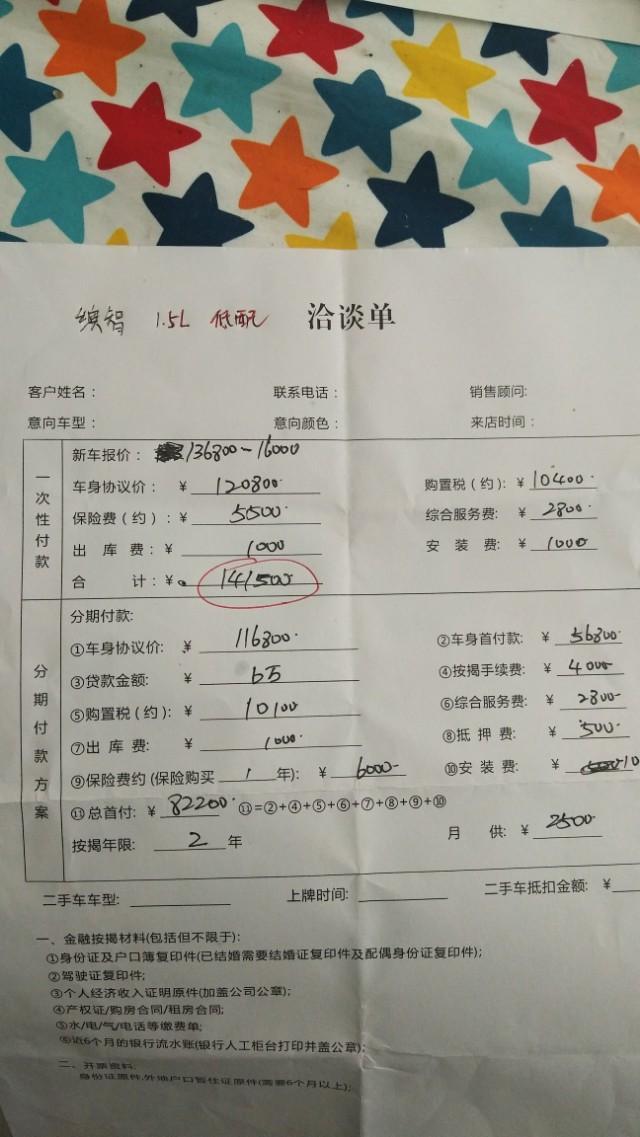 缤智 1.5L 低配 洽谈单
客户姓名： 联系电话： 销售顾问:
意向车型： 意向颜色： 来店时间：
一次性付款
新车报价： 136800-16000
车身协议价： ¥ 120800. 购置税（约）: ¥ 10400.
保险费（约）: ¥ 5500. 综合服务费: ¥ 2800.
出 库 费: ¥ 1000 安 装 费: ¥ 1000
合 计: ¥ 141500.
分期付款方案
分期付款:
①车身协议价: ¥ 116800. ②车身首付款: ¥ 56800.
③贷款金额: ¥ 6万 ④按揭手续费: ¥ 4000.
⑤购置税 ( 约 ): ¥ 10100 ⑥综合服务费: ¥ 2800.
⑦出 库 费: ¥ 1000. ⑧抵 押 费: ¥ 500.
⑨保险费约 (保险购买 1 年): ¥ 6000. ⑩安 装 费: ¥ 10
⑪总首付: ¥ 82200. ⑪=②+④+⑤+⑥+⑦+⑧+⑨+⑩
按揭年限: 2 年 月 供: ¥ 2500.
二手车车型: 上牌时间: 二手车抵扣金额: ¥
一、金融按揭材料(包括但不限于):
①身份证及户口簿复印件(已结婚需要结婚证复印件及配偶身份证复印件);
②驾驶证复印件;
③个人经济收入证明原件(加盖公司公章);
④产权证/购房合同/租房合同;
⑤水/电/气/电话等缴费单;
⑥近6个月的银行流水账(银行人工柜台打印并盖公章);
二、开票资料:
身份证原件,外地户口暂住证原件(需要6个月以上);